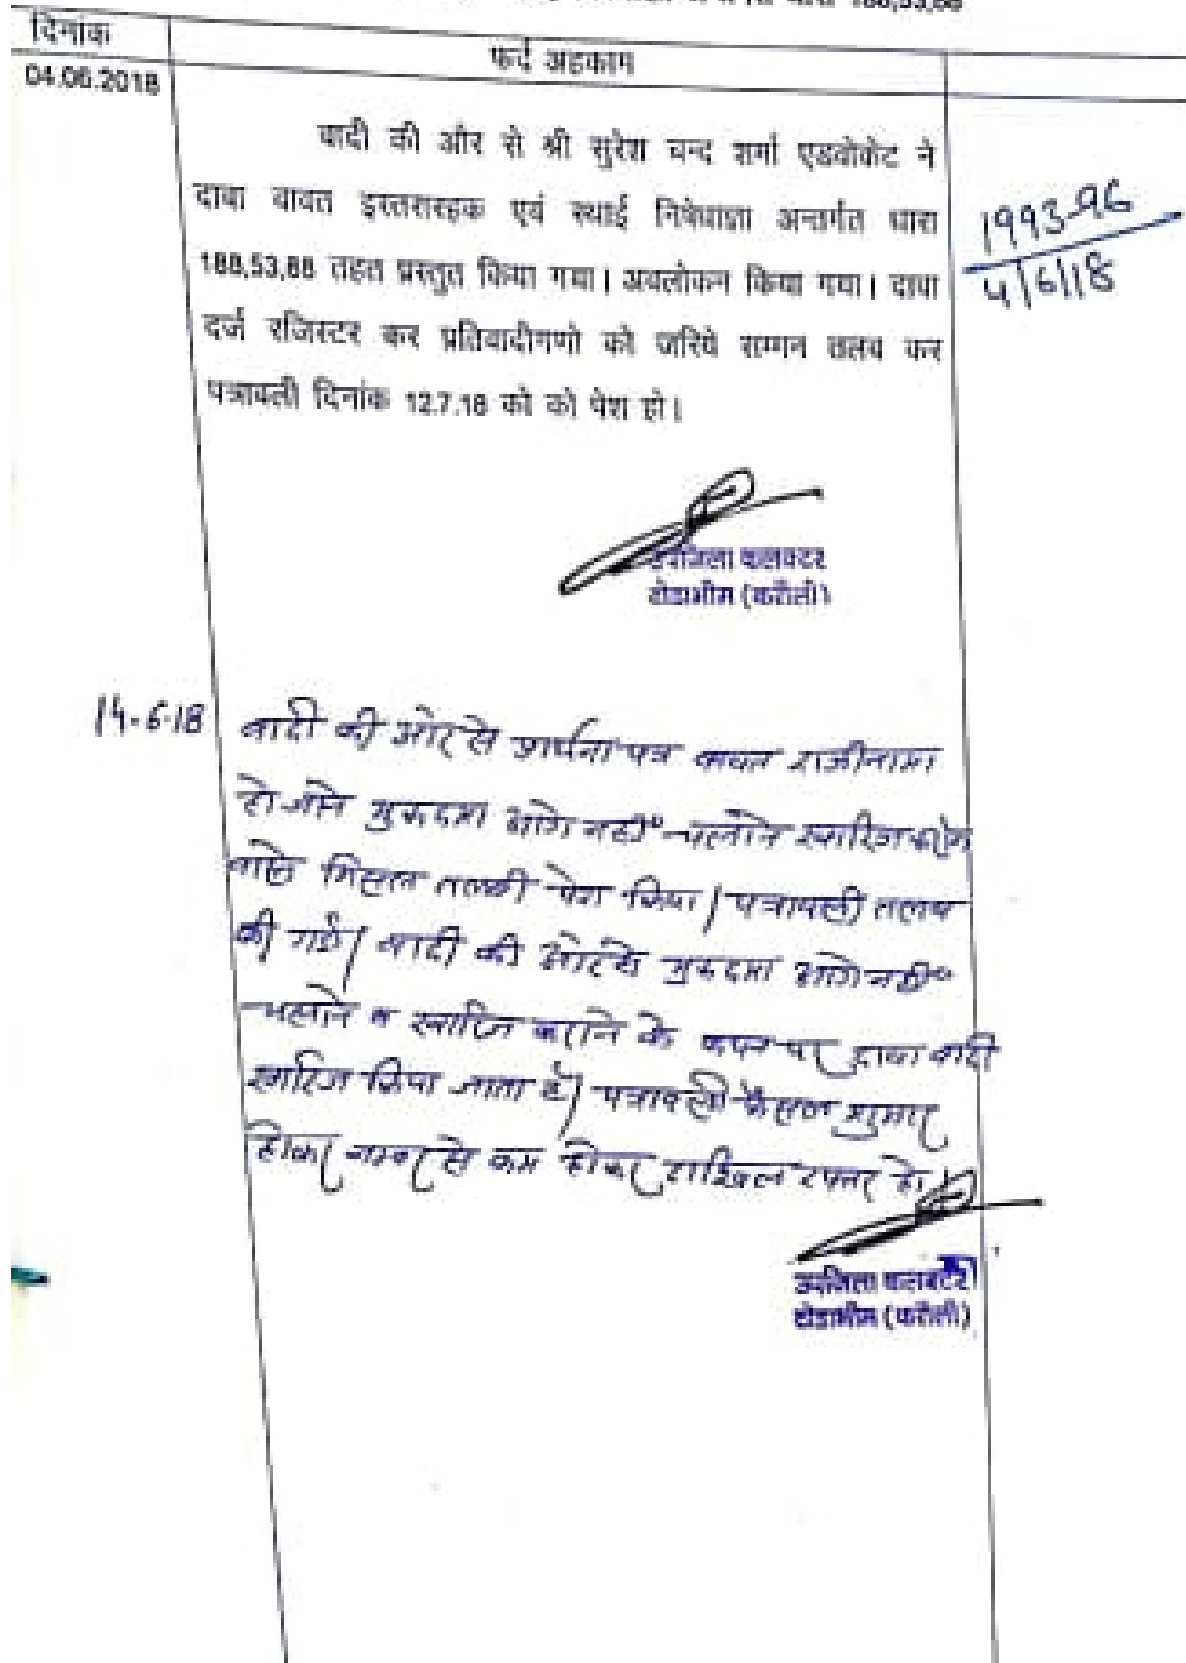 धारा 188,53,88
दिनांक
फर्द अहकाम
04.06.2018
वादी की और से श्री सुरेश चन्द शर्मा एडवोकेट ने
दावा वावत इस्तरारहक एवं स्थाई निषेधाज्ञा अन्तर्गत धारा
188,53,88 तहत प्रस्तुत किया गया। अवलोकन किया गया। दावा
दर्ज रजिस्टर कर प्रतिवादीगणो को जरिये सम्मन तलब कर
पत्रावली दिनांक 12.7.18 को को पेश हो।
1993-96
4/6/18
उपजिला कलक्टर
टोडाभीम (करौली)
14-6-18
वादी की ओर से प्रार्थना पत्र बावत राजीनामा
हो जाने मुकदमा आगे नहीं चलाने खारिज कराने
वास्ते मिसल तलबी पेश किया। पत्रावली तलब
की गई। वादी की ओर से मुकदमा आगे नहीं
चलाने व खारिज कराने के कथन पर दावा वादी
खारिज किया जाता है। पत्रावली फैसल शुमार
होकर नम्बर से कम होकर दाखिल दफ्तर हो।
उपजिला कलक्टर
टोडाभीम (करौली)